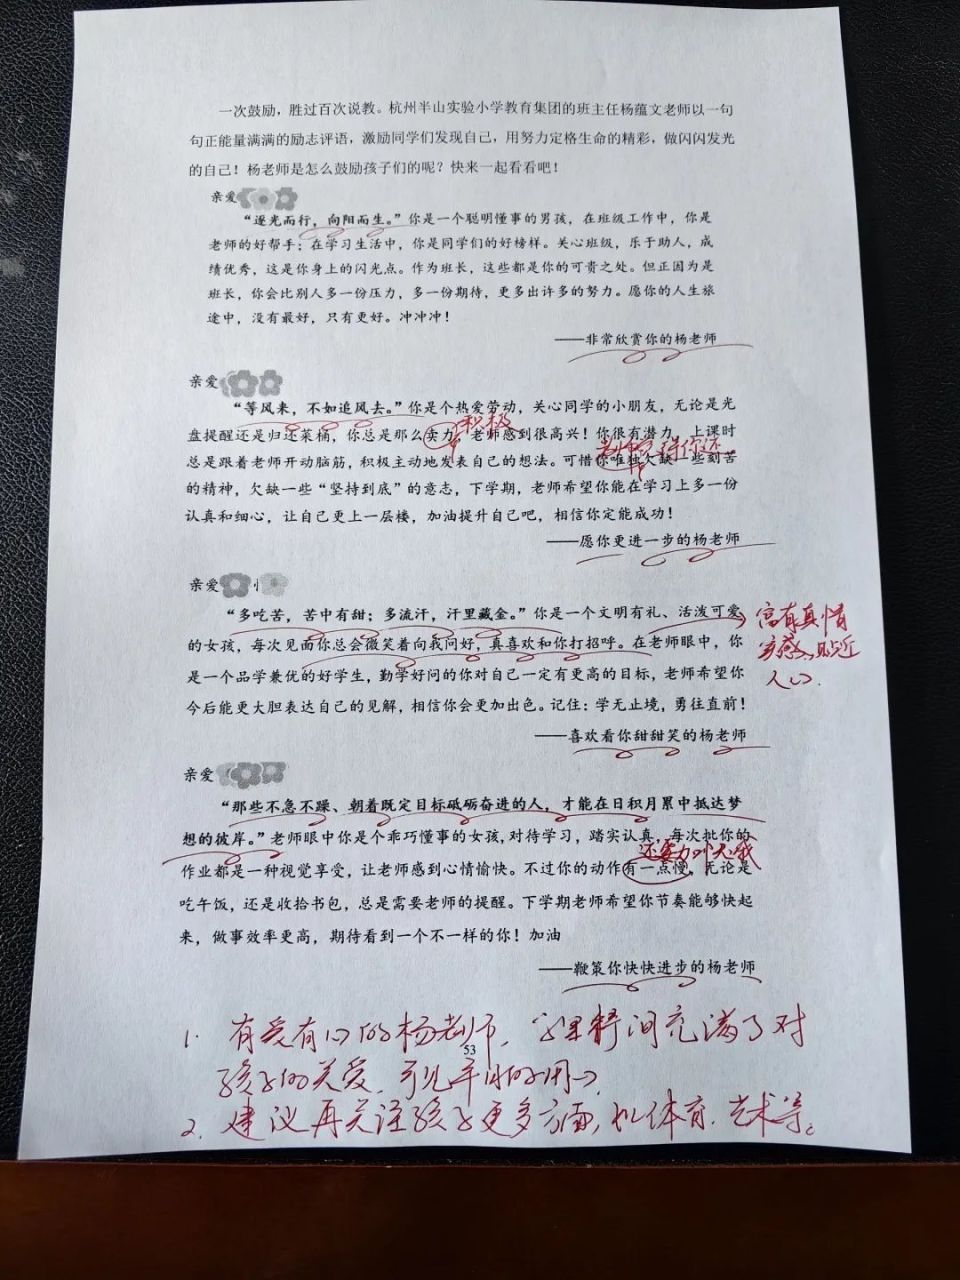 一次鼓励，胜过百次说教。杭州半山实验小学教育集团的班主任杨蕴文老师以一句
句正能量满满的励志评语，激励同学们发现自己，用努力定格生命的精彩，做闪闪发光
的自己！杨老师是怎么鼓励孩子们的呢？快来一起看看吧！
亲爱
“逐光而行，向阳而生。”你是一个聪明懂事的男孩，在班级工作中，你是
老师的好帮手；在学习生活中，你是同学们的好榜样。关心班级，乐于助人，成
绩优秀，这是你身上的闪光点。作为班长，这些都是你的可贵之处。但正因为是
班长，你会比别人多一份压力，多一份期待，更多出许多的努力。愿你的人生旅
途中，没有最好，只有更好。冲冲冲！
——非常欣赏你的杨老师
亲爱
“等风来，不如追风去。”你是个热爱劳动，关心同学的小朋友，无论是光
积极
盘提醒还是归还菜桶，你总是那么卖力，老师感到很高兴！你很有潜力，上课时
总是跟着老师开动脑筋，积极主动地发表自己的想法。可惜你唯独欠缺一些刻苦
的精神，欠缺一些“坚持到底”的意志，下学期，老师希望你能在学习上多一份
认真和细心，让自己更上一层楼，加油提升自己吧，相信你定能成功！
——愿你更进一步的杨老师
亲爱
“多吃苦，苦中有甜；多流汗，汗里藏金。”你是一个文明有礼、活泼可爱
的女孩，每次见面你总会微笑着向我问好，真喜欢和你打招呼。在老师眼中，你
是一个品学兼优的好学生，勤学好问的你对自己一定有更高的目标，老师希望你
今后能更大胆表达自己的见解，相信你会更加出色。记住：学无止境，勇往直前！
——喜欢看你甜甜笑的杨老师
富有真情
实感，贴近
人心.
亲爱
“那些不急不躁、朝着既定目标砥砺奋进的人，才能在日积月累中抵达梦
想的彼岸。”老师眼中你是个乖巧懂事的女孩，对待学习，踏实认真，每次批你的
还要加快哦
作业都是一种视觉享受，让老师感到心情愉快。不过你的动作有一点慢，无论是
吃午饭，还是收拾书包，总是需要老师的提醒。下学期老师希望你节奏能够快起
来，做事效率更高，期待看到一个不一样的你！加油
——鞭策你快快进步的杨老师
1. 有爱有心的杨老师，字里行间充满了对
53
孩子的关爱，可见平时的用心
2. 建议再关注孩子更多方面，如体育、艺术等。